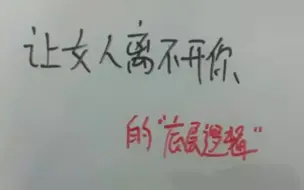 让女人离不开你
的"底层逻辑"